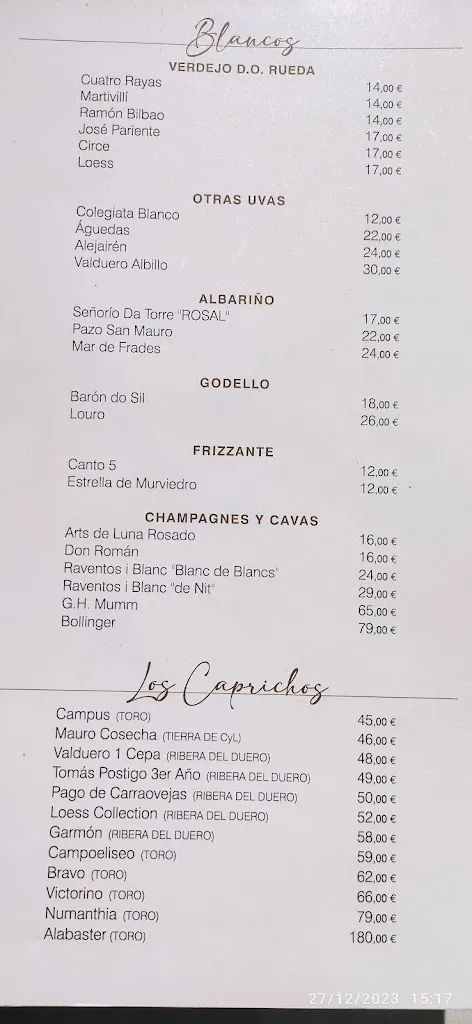 Blancos
VERDEJO D.O. RUEDA
Cuatro Rayas 14,00 €
Martivillí 14,00 €
Ramón Bilbao 14,00 €
José Pariente 17,00 €
Circe 17,00 €
Loess 17,00 €
OTRAS UVAS
Colegiata Blanco 12,00 €
Águedas 22,00 €
Alejairén 24,00 €
Valduero Albillo 30,00 €
ALBARIÑO
Señorío Da Torre "ROSAL" 17,00 €
Pazo San Mauro 22,00 €
Mar de Frades 24,00 €
GODELLO
Barón do Sil 18,00 €
Louro 26,00 €
FRIZZANTE
Canto 5 12,00 €
Estrella de Murviedro 12,00 €
CHAMPAGNES Y CAVAS
Arts de Luna Rosado 16,00 €
Don Román 16,00 €
Raventos i Blanc "Blanc de Blancs" 24,00 €
Raventos i Blanc "de Nit" 29,00 €
G.H. Mumm 65,00 €
Bollinger 79,00 €
Los Caprichos
Campus (TORO) 45,00 €
Mauro Cosecha (TIERRA DE CyL) 46,00 €
Valduero 1 Cepa (RIBERA DEL DUERO) 48,00 €
Tomás Postigo 3er Año (RIBERA DEL DUERO) 49,00 €
Pago de Carraovejas (RIBERA DEL DUERO) 50,00 €
Loess Collection (RIBERA DEL DUERO) 52,00 €
Garmón (RIBERA DEL DUERO) 58,00 €
Campoeliseo (TORO) 59,00 €
Bravo (TORO) 62,00 €
Victorino (TORO) 66,00 €
Numanthia (TORO) 79,00 €
Alabaster (TORO) 180,00 €
27/12/2023 15:17